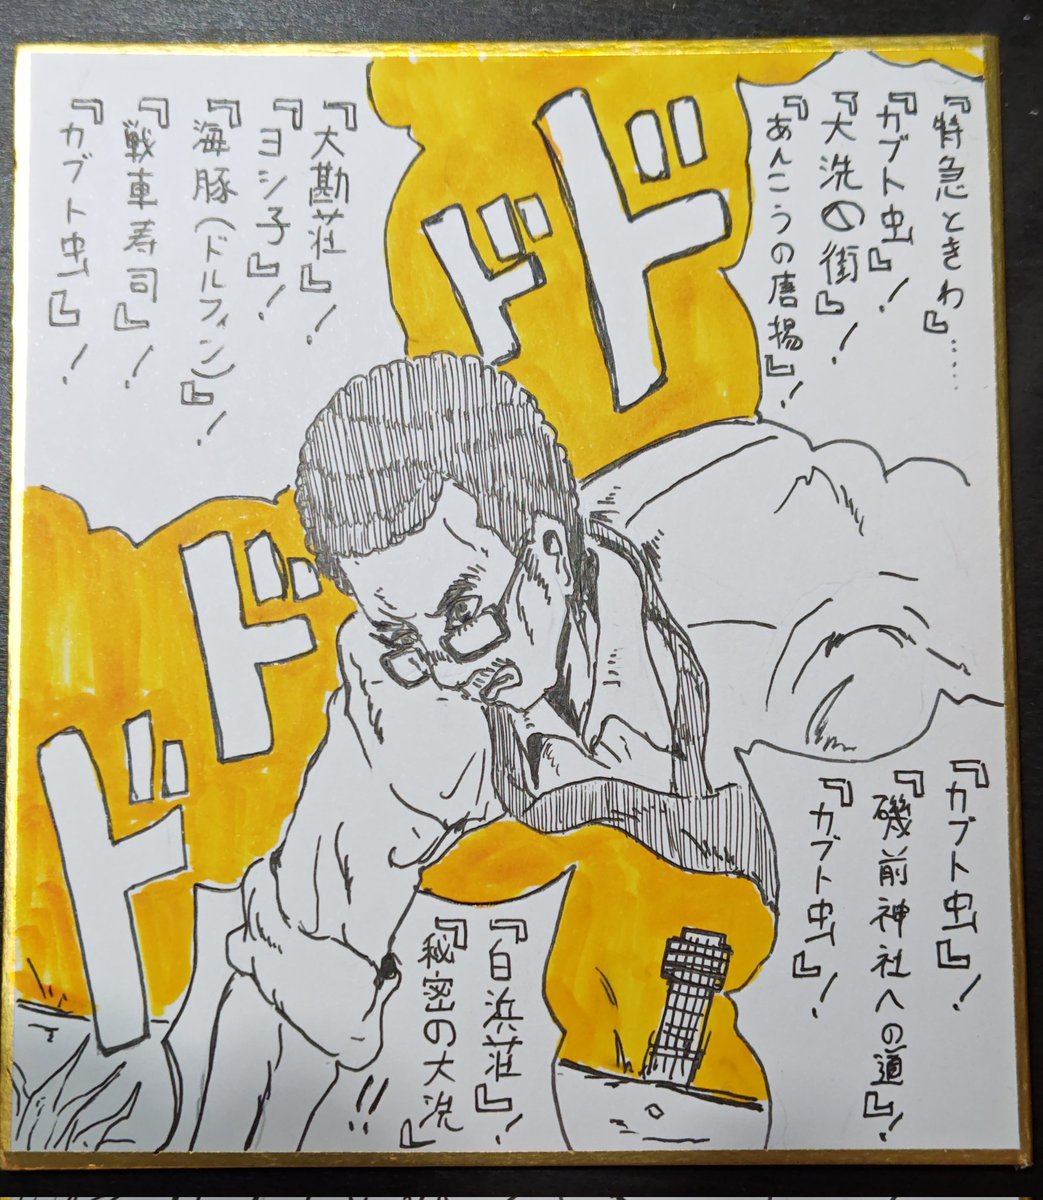 『特急ときわ』……
『カブト虫』!
『大洗の街』!
『あんこうの唐揚』!
ド
ド
『大勘荘』!
『ヨシ子』!
『海豚(ドルフィン)』!
『戦車寿司』!
『カブト虫』!
ド
ド
『カブト虫』!
『磯前神社への道』!
『カブト虫』!
『白浜荘』!
『秘密の大洗』!!